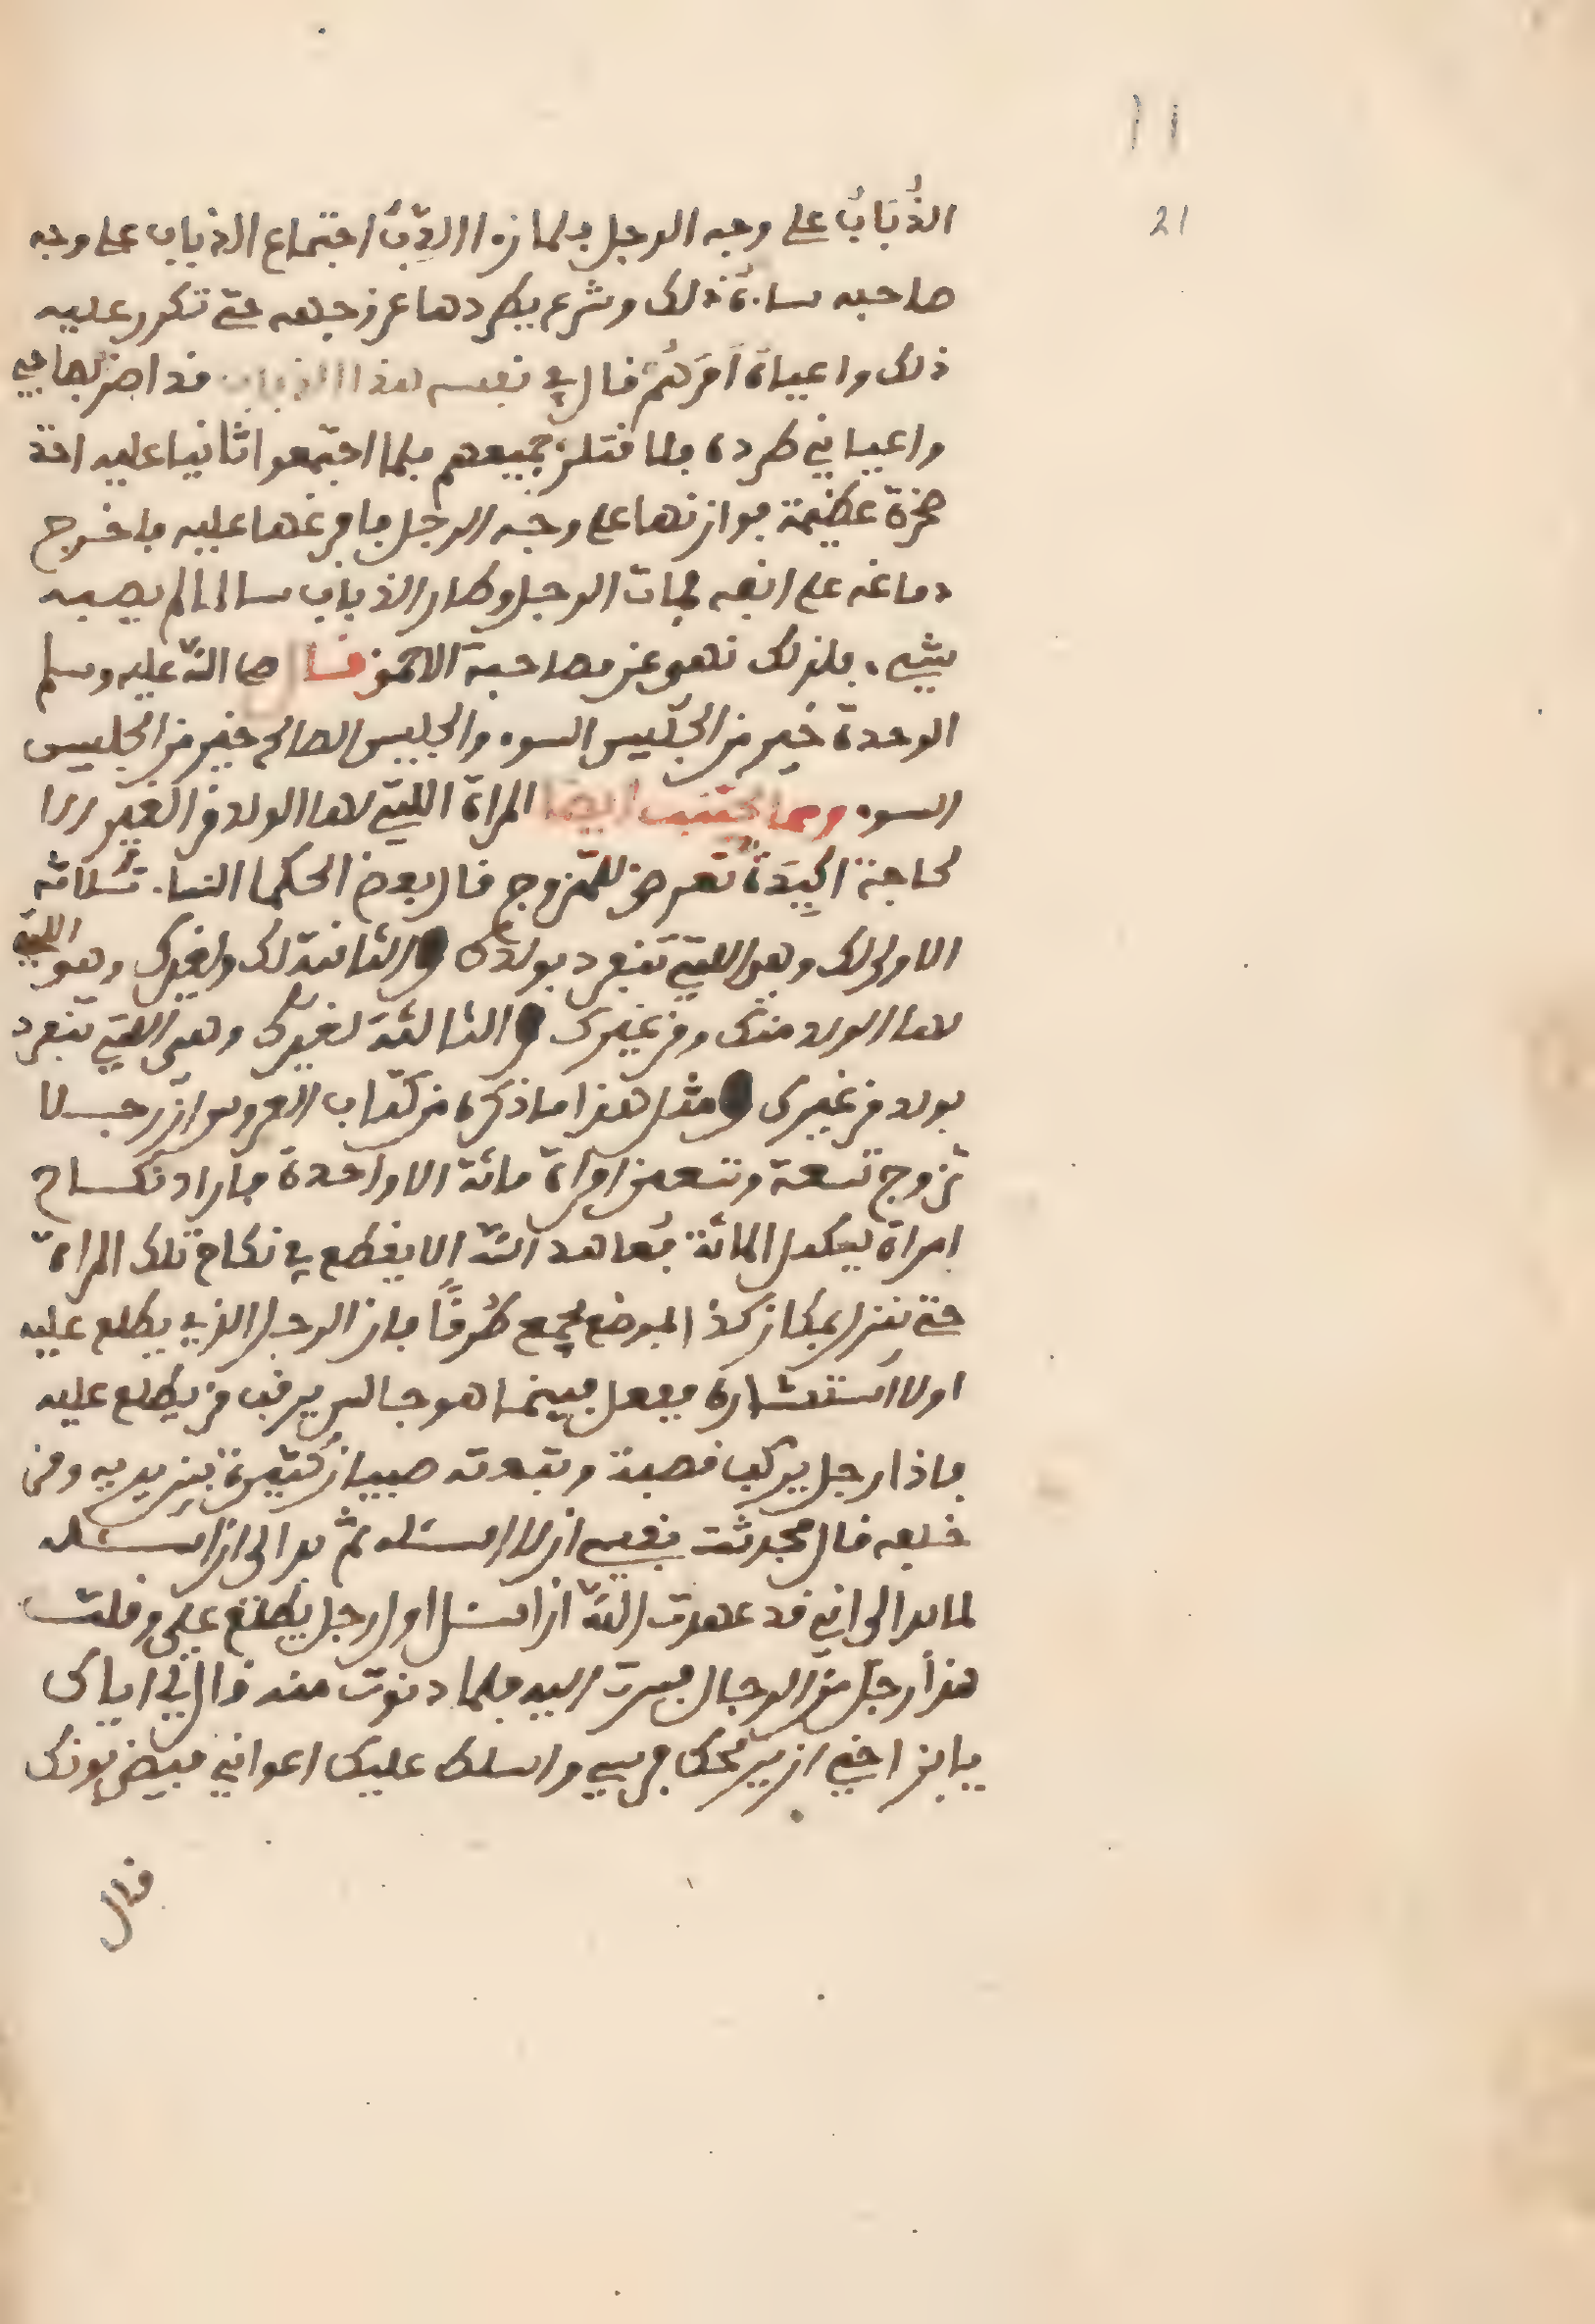 ١١
21
الذُبَابُ على وجه الرجل فلما رءا الدِّبُ اجتماع الذباب على وجه
صاحبه ساءهُ ذلك وشرع يطردها عن وجهه حتى تكرر عليه
ذلك واعياهُ اَمرَهُم قال في نفسه هذا الذباب قد اضر بصاحبي
واعياني طرده ولا قتلن جميعهم فلما اجتمعوا ثانيا عليه اخذ
صخرة عظيمة فوازنها على وجه الرجل فافرغها عليه فاخرج
دماغه على انفه فمات الرجل وطار الذباب سالما لم يصبه
شيء فلذلك نهو عن مصاحبة الاحمق قال صلى الله عليه وسلم
الوحدة خير من الجليس السوء والجليس الصالح خير من الجليس
السوء ومما يجتنب ايضا المراة اللتي لها الولد من الغير الا
لحاجة اكيدة تعرض للمتزوج قال بعض الحكما النساء ثلاثة
الاولى لك وهي اللتي تنفرد بولدك والثانية لك ولغيرك وهي اللتي
لها الولد منك ومن غيرك والثالثة لغيرك وهي اللتي تنفرد
بولد من غيرك ومثل هذا ما ذكره من كتاب العروس ان رجلا
تزوج تسعة وتسعين امراة مائة الا واحدة فاراد نكاح
امراة ليكمل المائة فعاهد الله الا يقطع في نكاح تلك المراة
حتى ينزل بمكان كذا لموضع يجمع طُرقًا فان الرجل الذي يطلع عليه
اولا استشاره ففعل فبينما هو جالس يرقب من يطلع عليه
فاذا رجل يركب قصبة وتبعته صبيان كثيرة بين يديه ومن
خلفه قال فحدثت نفسي ان لا اسئله ثم بدا لي ان اسئله
لما بدا لي اني قد عهدت الله ان اسئل اول رجل يطلع علي وقلت
هذا رجل من الرجال فسرت اليه فلما دنوت منه قال لي اياك
يابن اخي ان يرمحك فرسي واسلط عليك اعواني فيضربونك
قال